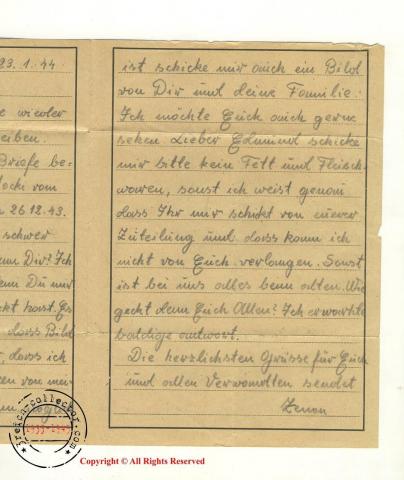 23.1.44
ist schicke mir auch ein Bild
von Dir und deine Familie.
Ich möchte Euch auch gerne
sehen. Lieber Edmund schicke
mir bitte kein Fett und Fleisch-
waren, sonst ich weist genau
dass Ihr mir schikt von euerer
Zuteilung und dass kann ich
nicht von Euch verlangen. Sonst
ist bei uns alles beim alten. Wie
geht dem Euch Allen? Ich erwarkte
baldige antwort.
Die herzlichsten Grüsse für Euch
und allen Verwandten sendet
Zenon
e wieder
eiben.
Briefe be=
locki vom
n 26.12.43.
schwer
Dir? Ich
Du mir
ckt hast. Es
dass Bild
, dass ich
en von mei-
french-collector.com
1939-1945
Copyright © All Rights Reserved